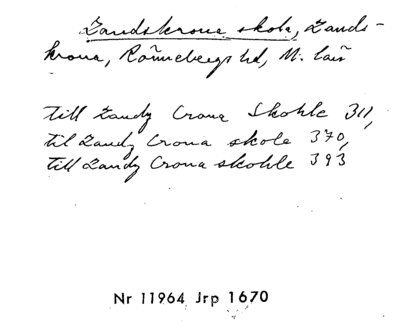 Landskrona skola, Lands-
krona, Rönnebergs hd, M. län
till Landz Crona Skohle 311,
til Landz Crona skole 370,
till Landz Crona skohle 393
Nr 11964 Jrp 1670